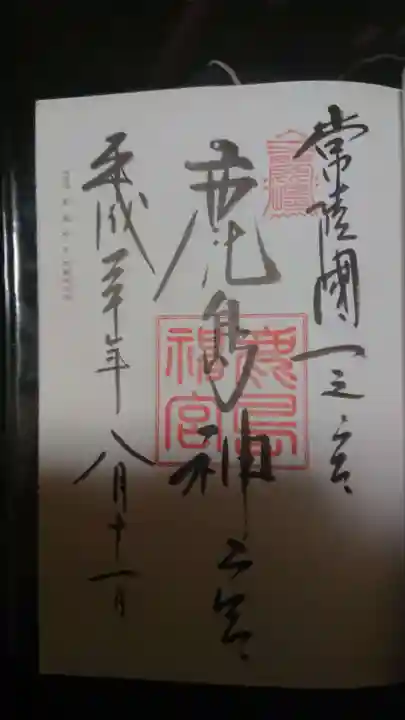 常陸國一之宮
鹿島神宮
平成二十年八月十一日
鹿島神宮